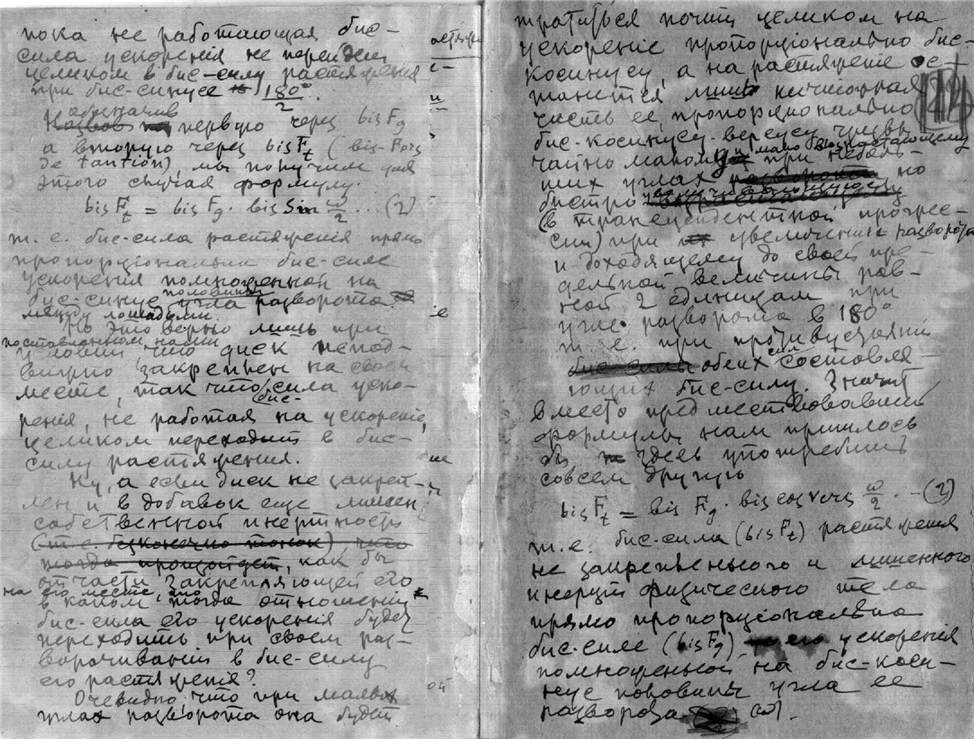 пока не работающая бис-
сила ускоренiя не перейдет
целиком в бис-силу растяженiя
при бис-синусе 180°/2.
обозначив
первую через bis Fg
а вторую через bis Ft (bis-Fors
de tantion) мы получим для
этого случая формулу.
bis Ft = bis Fg bis Sin ω/2 ... (2)
т. е. бис-сила растяженiя прямо
пропорцiональна бис-силе
ускоренiя помноженной на
бис-синус половины угла разворота
между лошадьми.
Но это верно лишь при
поставленном нами
условии, что диск непод-
вижно закреплен на своем
месте, так что бис-сила уско-
ренiя, не работая на ускоренiе,
целиком переходит в бис-
силу растяженiя.
Ну, а если диск не закреп-
лен и в добавок еще лишен
собственной инертности
(т.е. безконечно тонок) что
тогда произойдет, как бы
отчасти закрепляющей его
на его месте, то
в каком тогда отношенiи
бис-сила его ускоренiя будет
переходить при своем раз-
ворачиванiи в бис-силу
его растяженiя?
Очевидно что при малых
углах разворота она будет
тратиться почти целиком на
ускоренiе пропорцiонально бис-
косинусу, а на растяженiе ос-
танется лишь ничтожная
часть ее пропорцiонально
бис-косинусу-версусу чрезвы-
чайно малому и мало возрастающему
при неболь-
ших углах но
быстро
(в трансцендентной прогрес-
сии) при увеличенiи разворота
и доходящему до своей пре-
дельной величины рав-
ной 2 единицам при
угле разворота в 180°
т. е. при противустоянiи
обеих сил составля-
ющих бис-силу. Значит
вместо предшествовавшей
формулы нам пришлось
бы здесь употребить
совсем другую
bis Ft = bis Fg · bis cos vers ω/2 .. (2)
т.е. бис-сила (bis Ft) растяженiя
не закрепленного и лишенного
инерции физического тела
прямо пропорцiональна
бис-силе (bis Fg) ускоренiя
помноженной на бис-коси-
нус половины угла ее
разворота (ω).